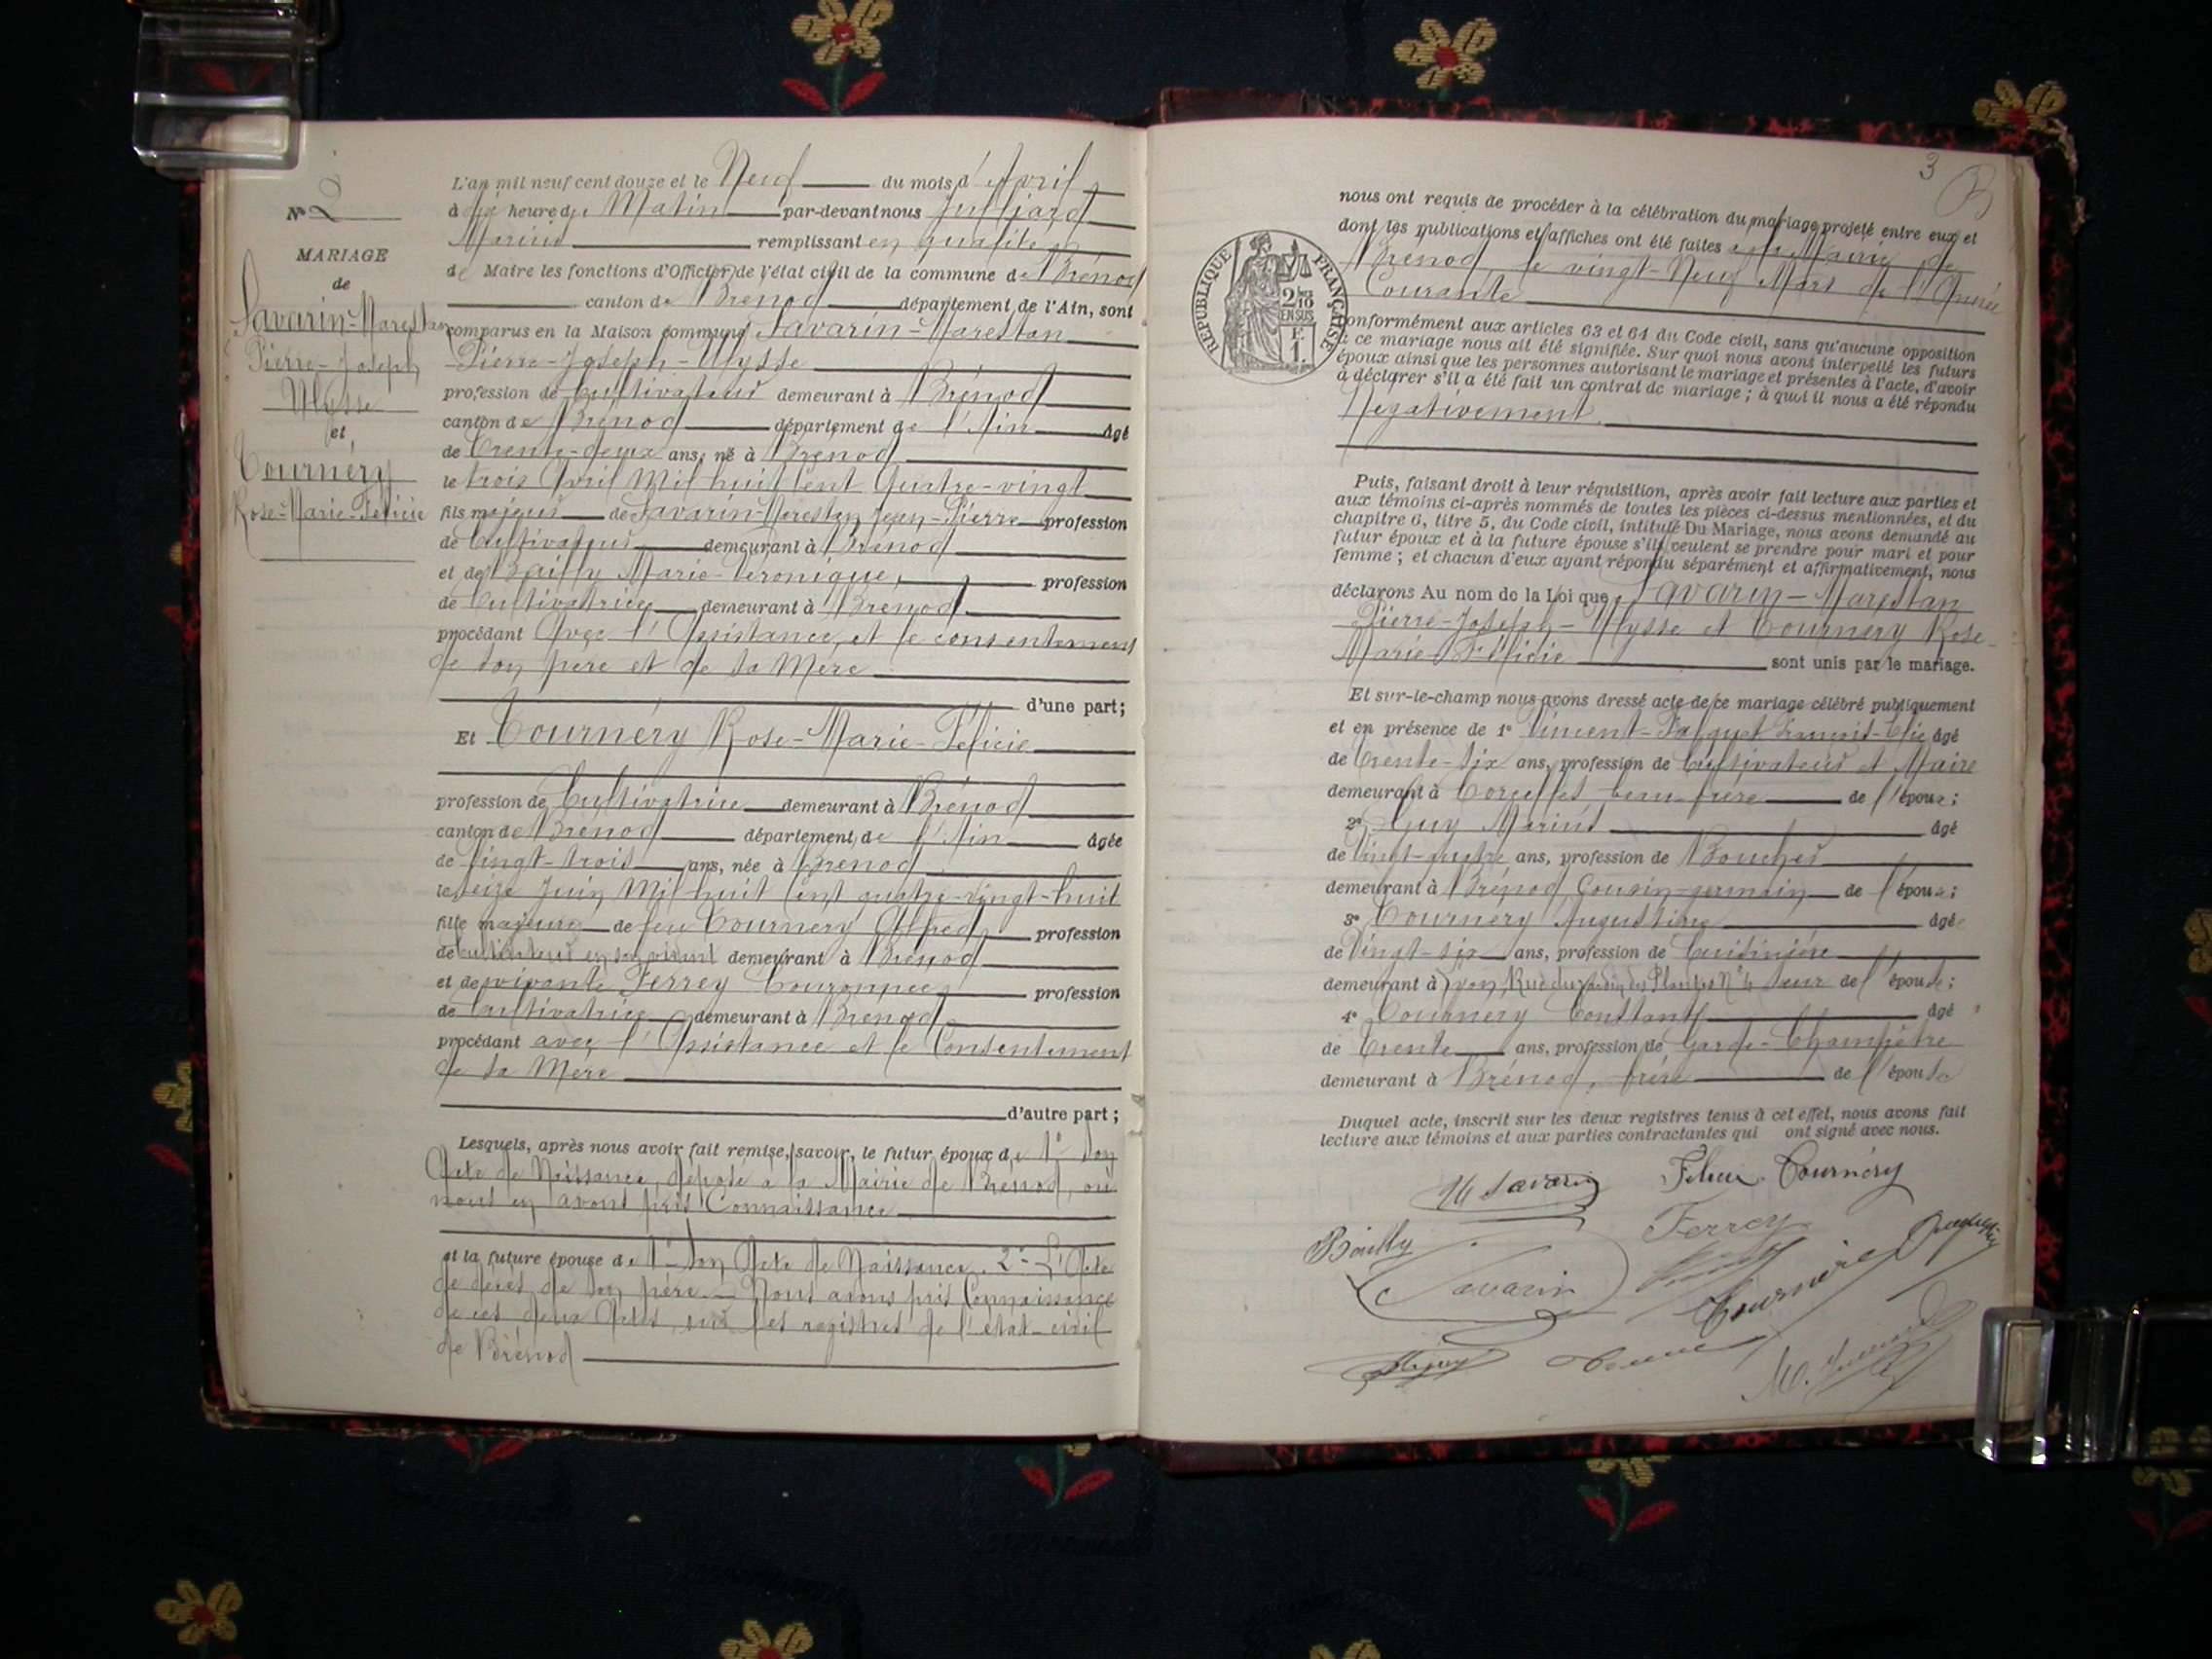 N° 2
MARIAGE
de
Savarin-Marestan
Pierre-Joseph
Ulysse
et
Tournéry
Rose-Marie-Félicie
L'an mil neuf cent douze et le Neuf du mois d'Avril
à dix heures du Matin par-devant nous Julliard
Marius remplissant en qualité
de Maire les fonctions d'Officier de l'état civil de la commune de Brénod
canton de Brénod département de l'Ain, sont
comparus en la Maison commune Savarin-Marestan
Pierre-Joseph-Ulysse
profession de Cultivateur demeurant à Brénod
canton de Brénod département de l'Ain âgé
de Trente-deux ans, né à Brénod
le trois Avril Mil huit Cent Quatre-vingt
fils majeur de Savarin-Marestan Jean-Pierre profession
de Cultivateur demeurant à Brénod
et de Bailly Marie-Véronique, profession
de Cultivatrice demeurant à Brénod
procédant Avec l'Assistance et le consentement
de son père et de sa Mère
d'une part;
Et Tournéry Rose-Marie-Félicie
profession de Cultivatrice demeurant à Brénod
canton de Brénod département de l'Ain âgée
de Vingt-trois ans, née à Brénod
le seize Juin Mil huit Cent quatre-vingt-huit
fille majeure de feu Tournery Alfred profession
de cultivateur en son vivant demeurant à Brénod
et de vivante Ferrey Couronnée profession
de Cultivatrice demeurant à Brénod
procédant avec l'Assistance et le Consentement
de sa Mère
d'autre part;
Lesquels, après nous avoir fait remise, savoir, le futur époux de 1° Son
Acte de Naissance, déposé à la Mairie de Brénod, où
nous en avons pris Connaissance
et la future épouse de 1° Son Acte de Naissance. 2° L'Acte
de décès de son père. — Nous avons pris Connaissance
de ces deux Actes, sur les registres de l'état-civil
de Brénod
3
nous ont requis de procéder à la célébration du mariage projeté entre eux et
dont les publications et affiches ont été faites à la Mairie de
Brénod, le vingt-Neuf Mars de l'Année
Courante
REPUBLIQUE FRANÇAISE
2/10 EN SUS
F. 1.
conformément aux articles 63 et 64 du Code civil, sans qu'aucune opposition
à ce mariage nous ait été signifiée. Sur quoi nous avons interpellé les futurs
époux ainsi que les personnes autorisant le mariage et présentes à l'acte, d'avoir
à déclarer s'il a été fait un contrat de mariage; à quoi il nous a été répondu
Négativement.
Puis, faisant droit à leur réquisition, après avoir fait lecture aux parties et
aux témoins ci-après nommés de toutes les pièces ci-dessus mentionnées, et du
chapitre 6, titre 5, du Code civil, intitulé Du Mariage, nous avons demandé au
futur époux et à la future épouse s'ils veulent se prendre pour mari et pour
femme; et chacun d'eux ayant répondu séparément et affirmativement, nous
déclarons Au nom de la Loi que Savarin-Marestan
Pierre-Joseph-Ulysse et Tournery Rose-
Marie-Félicie sont unis par le mariage.
Et sur-le-champ nous avons dressé acte de ce mariage célébré publiquement
et en présence de 1° Vincent-Falquet François-Elie âgé
de Trente-six ans, profession de Cultivateur et Maire
demeurant à Corcelles beau-frère de l'époux;
2° Guy Marius âgé
de Vingt-quatre ans, profession de Boucher
demeurant à Brénod, Cousin-germain de l'époux;
3° Tournery Augustine âgé
de Vingt-six ans, profession de Cuisinière
demeurant à Lyon, Rue du Jardin des Plantes N° Sœur de l'épouse;
4° Tournery Constant âgé
de Trente ans, profession de Garde-Champêtre
demeurant à Brénod, frère de l'épouse
Duquel acte, inscrit sur les deux registres tenus à cet effet, nous avons fait
lecture aux témoins et aux parties contractantes qui ont signé avec nous.
Savarin Tournéry
Bailly Ferrey
Savarin